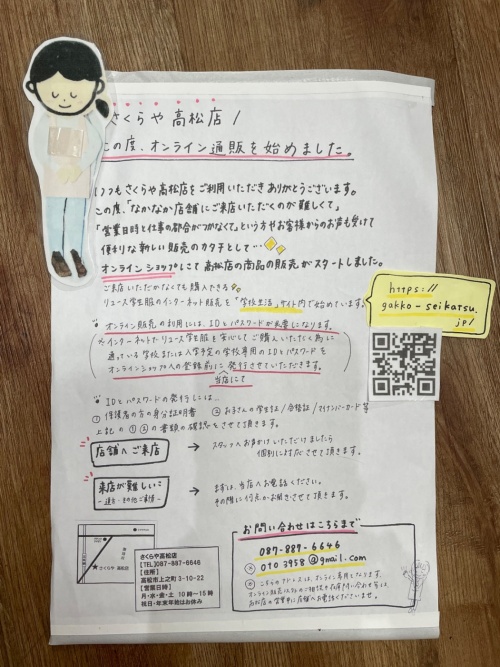 さくらや 高松店 /
この度、オンライン通販を始めました。
いつも さくらや高松店をご利用いただき ありがとうございます。
この度、「なかなか店舗にご来店いただくのが難しくて」
「営業日時と仕事の都合がつかなくて」という方やお客様からのお声も受けて
便利な新しい販売のカタチとして…
オンラインショップにて 高松店の商品の販売がスタートしました。
ご来店いただかなくても購入できる
リユース学生服のインターネット販売を「学校生活」サイト内で始めています。
https://
gakko-seikatsu.
jp/
オンライン販売の利用には、IDとパスワードが必要になります。
インターネットでリユース学生服を安心してご購入いただく為に
通っている学校または入学予定の学校専用のIDとパスワードを
オンラインショップへの登録前に発行させていただきます。
当店にて
IDとパスワードの発行には…
① 保護者の方の身分証明書 ② お子さんの学生証/合格証/マイナンバーカード等
上記の①②の書類の確認をさせて頂きます。
店舗へご来店 → スタッフへお声かけいただけましたら
個別に対応させて頂きます。
来店が難しい
-遠方・その他ご事情-
→ まずは、当店へお電話ください。
その際に何点かお聞きさせて頂きます。
さくらや 高松店
さくらや高松店
[TEL]087-887-6646
[住所]
高松市上之町3-10-22
[営業日時]
月・水・金・土 10時～15時
祝日・年末年始はお休み
お問い合わせはこちらまで
087-887-6646
0103958@gmail.com
こちらのアドレスは、オンライン専用となります。
オンライン販売以外のご相談や在庫問い合わせ等は、
高松店の営業中に店舗へお電話くださいませ。